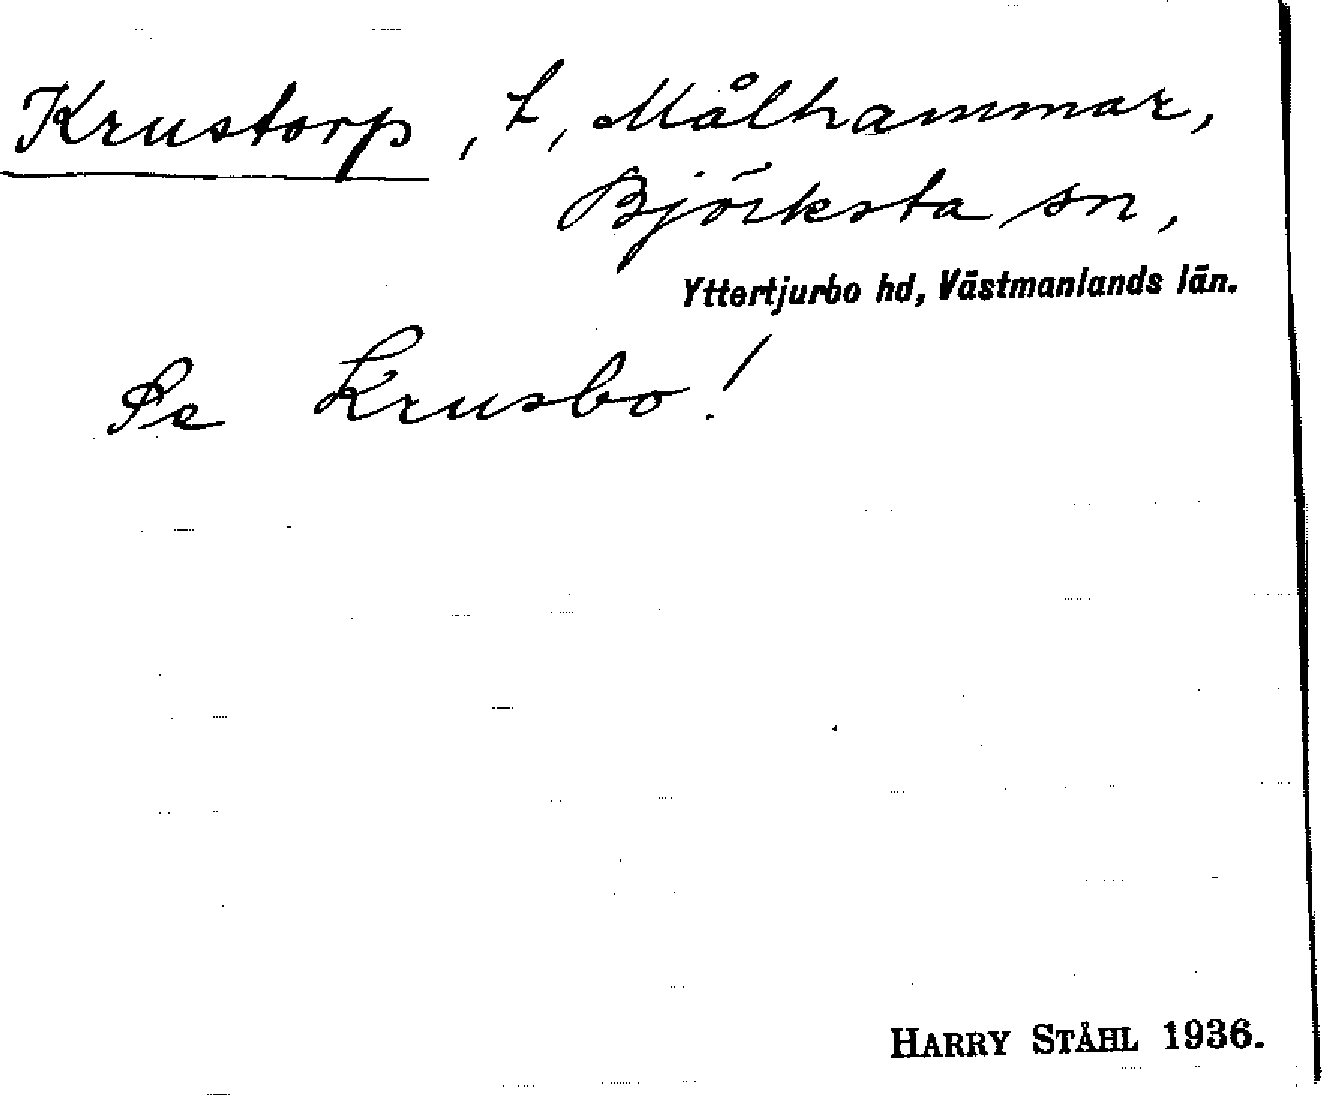 Krustorp, t, Målhammar,
Björksta sn,
Yttertjurbo hd, Västmanlands län.
Se Krusbo!
HARRY STÅHL 1936.